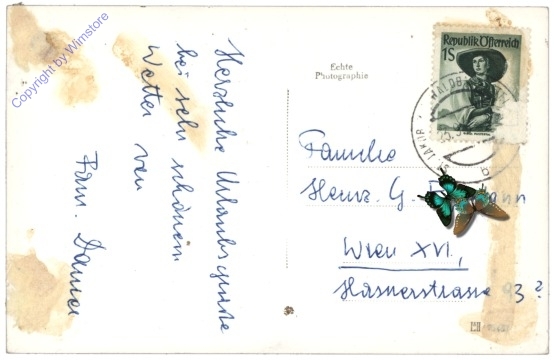 Copyright by Wimstore
Herzliche Urlaubsgrüße
bei sehr schönem
Wetter von
Fam.
Echte
Photographie
Republik Österreich
1S
Familie
Heinz. G.
Wien XVI.,
Hasnerstrasse 93?